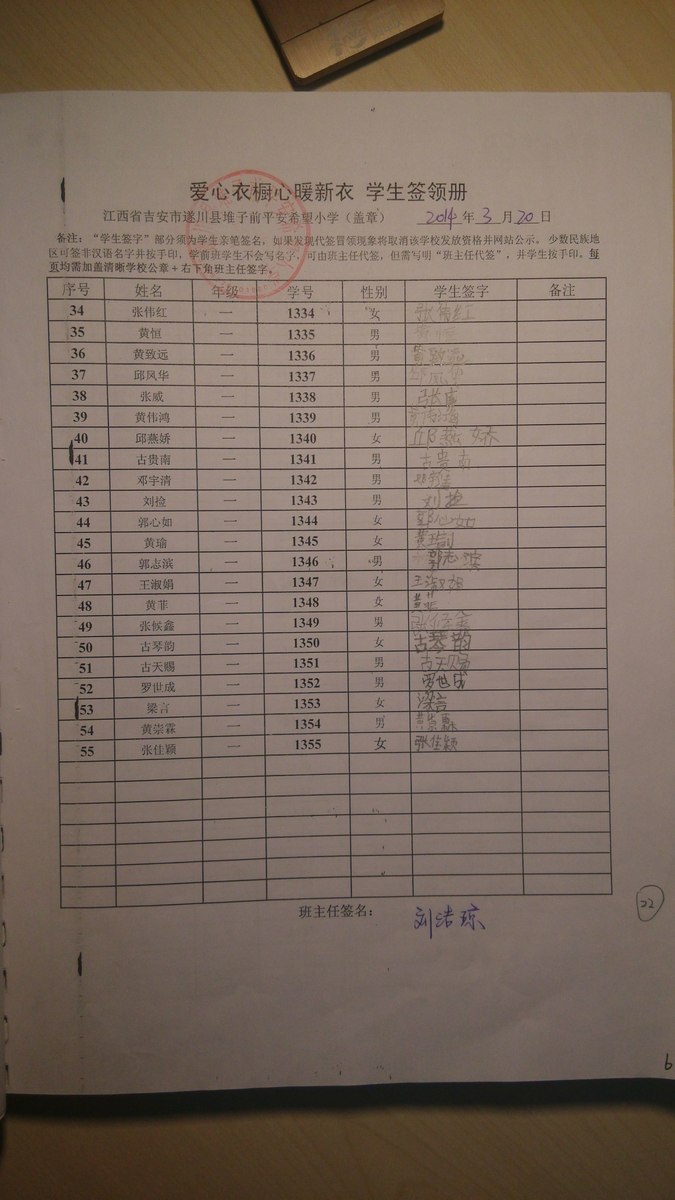 爱心衣橱心暖新衣 学生签领册
江西省吉安市遂川县堆子前平安希望小学（盖章） 2014 年 3 月 20 日
备注：“学生签字”部分须为学生亲笔签名，如果发现代签冒领现象将取消该学校发放资格并网站公示。少数民族地
区可签非汉语名字并按手印，学前班学生不会写名字，可由班主任代签，但需写明“班主任代签”，并学生按手印。每
页均需加盖清晰学校公章+右下角班主任签字。
序号 姓名 年级 学号 性别 学生签字 备注
34 张伟红 一 1334 女 张伟红
35 黄恒 一 1335 男 黄恒
36 黄致远 一 1336 男 黄致远
37 邱风华 一 1337 男 邱风华
38 张威 一 1338 男 张威
39 黄伟鸿 一 1339 男 黄伟鸿
40 邱燕娇 一 1340 女 邱燕娇
41 古贵南 一 1341 男 古贵南
42 邓宇清 一 1342 男
43 刘捡 一 1343 男 刘捡
44 郭心如 一 1344 女 郭心如
45 黄瑜 一 1345 女 黄瑜
46 郭志滨 一 1346 男 郭志滨
47 王淑娟 一 1347 女 王淑娟
48 黄菲 一 1348 女 黄菲
49 张候鑫 一 1349 男 张候鑫
50 古琴韵 一 1350 女 古琴韵
51 古天赐 一 1351 男 古天赐
52 罗世成 一 1352 男 罗世成
53 梁言 一 1353 女 梁言
54 黄崇霖 一 1354 男 黄崇霖
55 张佳颖 一 1355 女 张佳颖
班主任签名： 刘洁琼
22
6